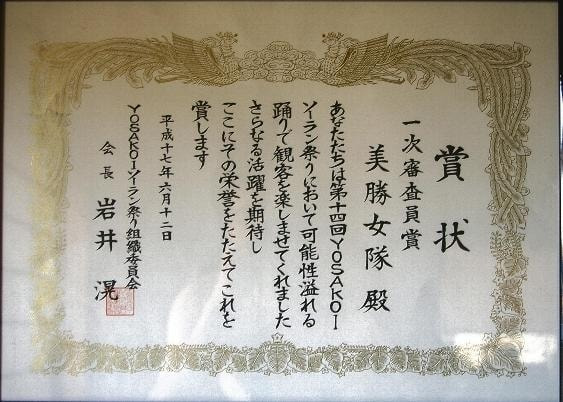 賞状
一次審査員賞
美勝女隊殿
あなたたちは第十四回YOSAKOI
ソーラン祭りにおいて可能性溢れる
踊りで観客を楽しませてくれました
さらなる活躍を期待し
ここにその栄誉をたたえてこれを
賞します
平成十七年六月十二日
YOSAKOIソーラン祭り組織委員会
会長 岩井滉